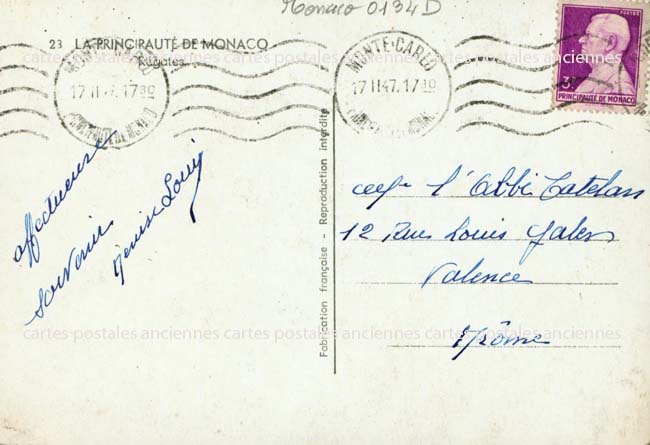 Monaco 0134D
23 LA PRINCIPAUTÉ DE MONACO
Régates
MONTE-CARLO
17 II 47. 17 30
MONTE-CARLO
17 II 47. 17 30
POSTES
3F
PRINCIPAUTÉ DE MONACO
affectueux
souvenirs
Denise Louis
Fabrication française - Reproduction interdite
l'Abbé Catelan
12 Rue Louis
Valence
Drôme
cartes postales anciennes cartes postales anciennes cartes postales anciennes
cartes postales anciennes cartes postales anciennes cartes postales anciennes